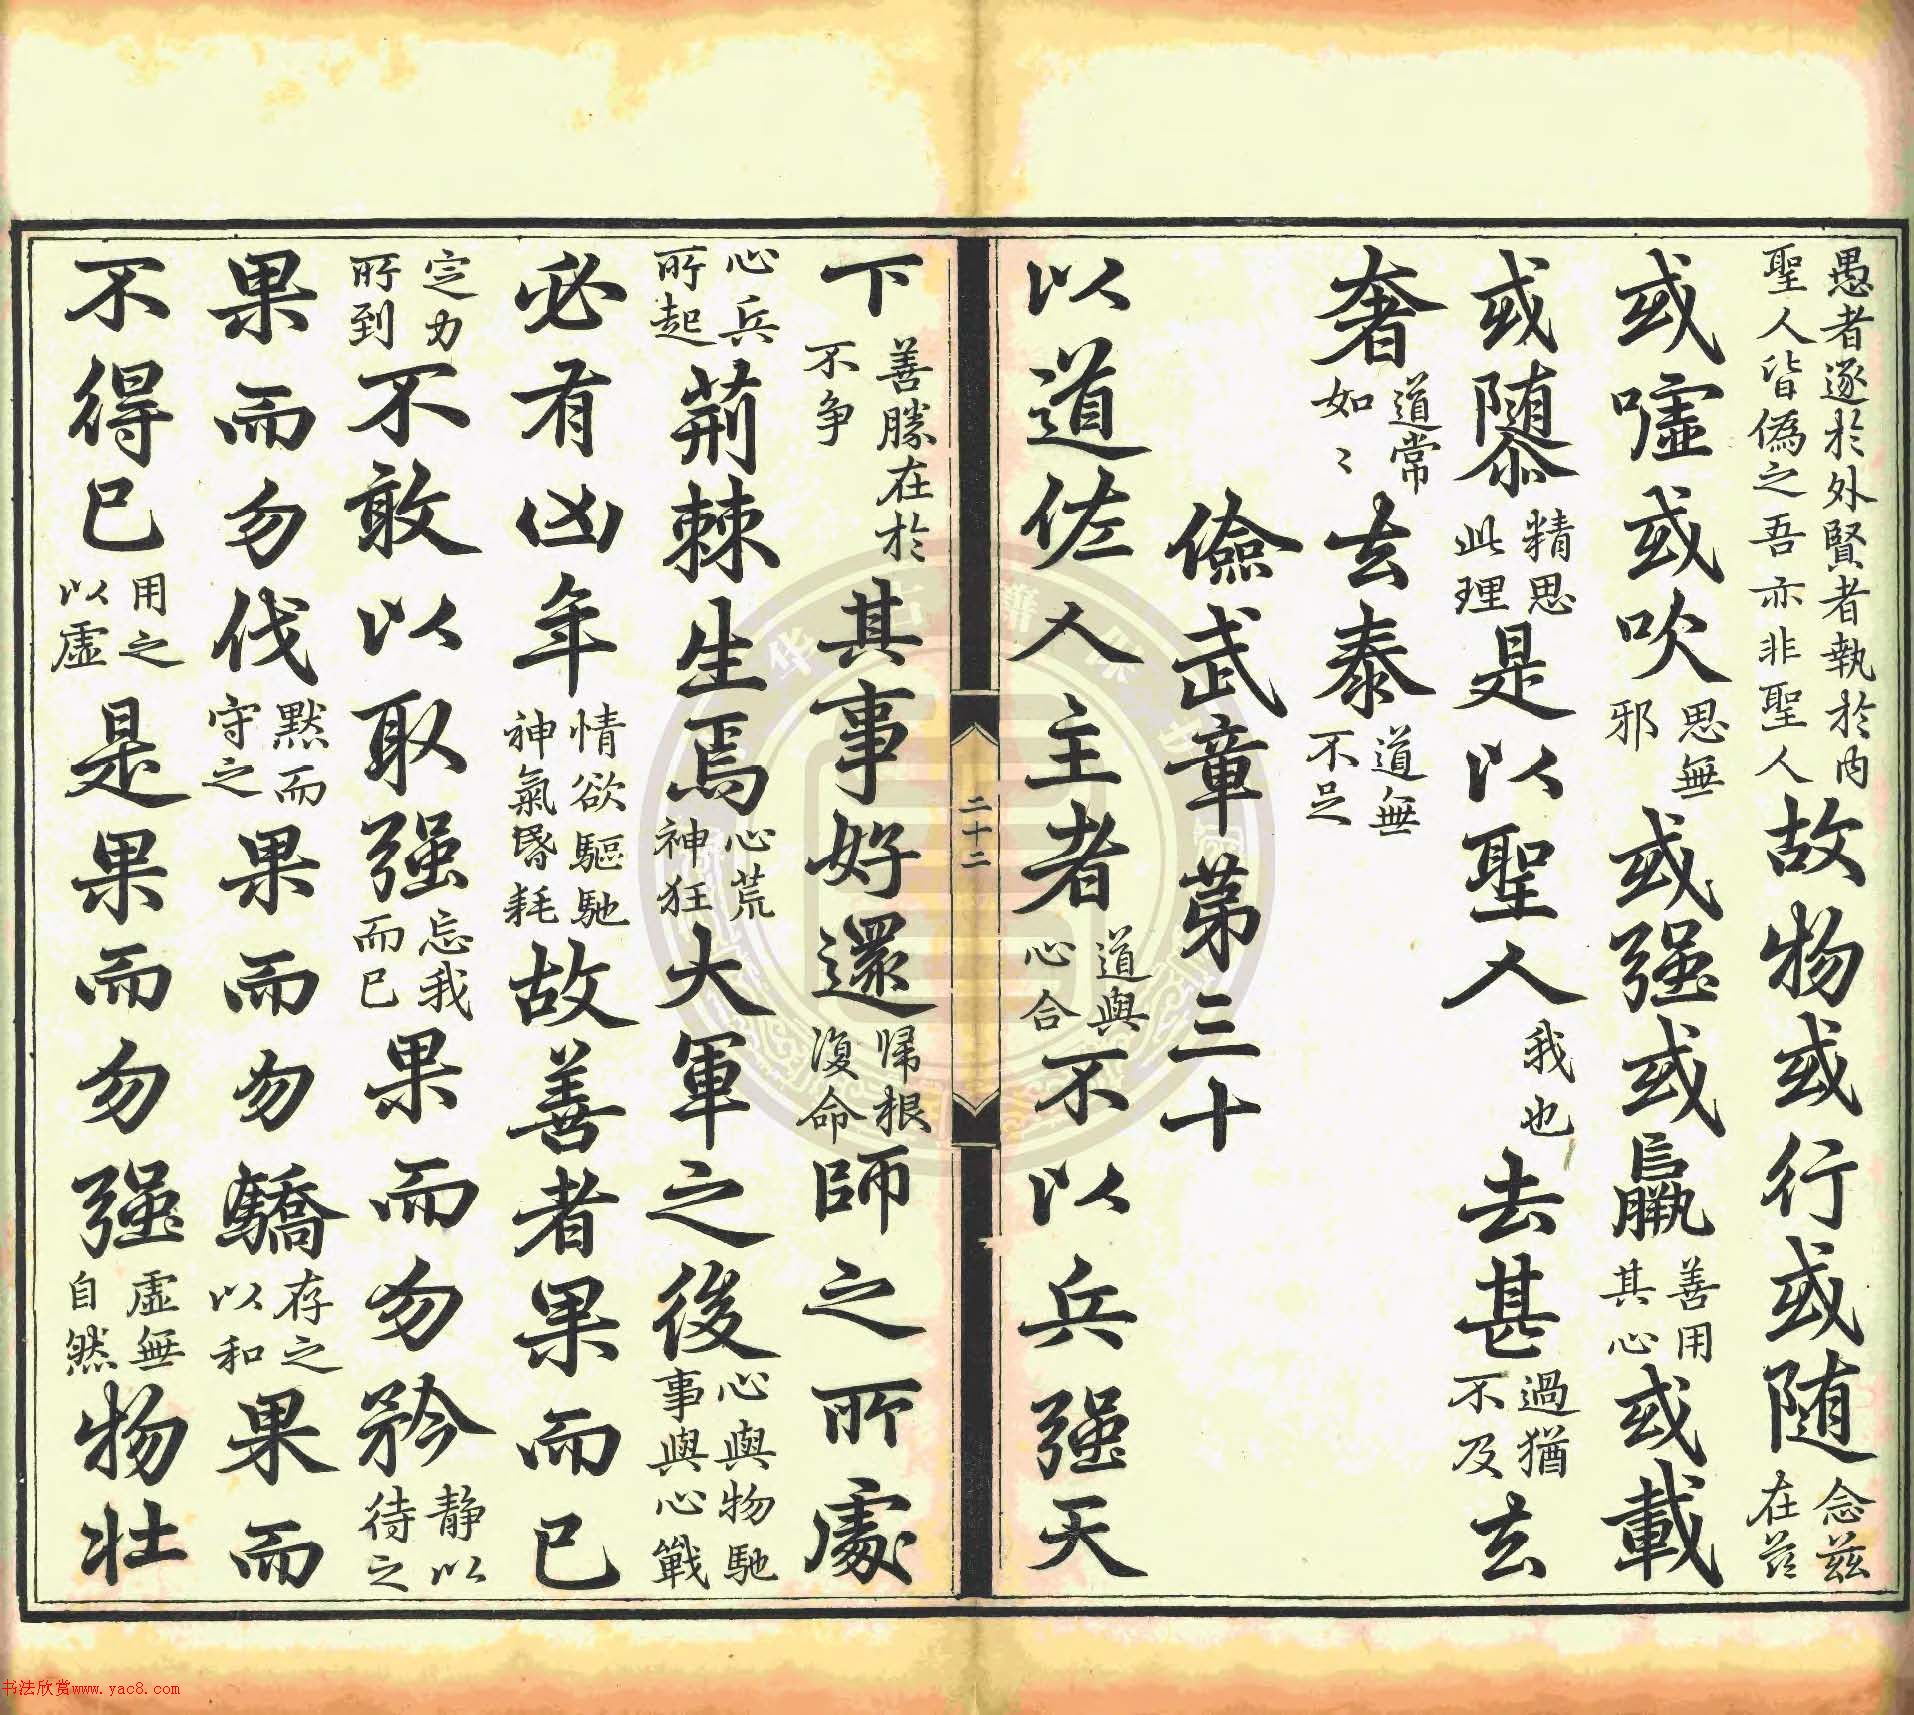 愚者逐於外賢者執於内聖人皆偽之吾亦非聖人故物或行或随念兹在兹
或嘘或吹思無邪或强或羸善用其心或載
或隳精思此理是以聖人我也去甚過猶不及去
奢道常如〻去泰道無不足
儉武章第三十
以道佐人主者道與心合不以兵强天
二十二
下善勝在於不争其事好還帰根復命師之所處
心兵所起荊棘生焉心荒神狂大軍之後心與物馳事與心戰
必有凶年情欲驅馳神氣昏耗故善者果而已
定力所到不敢以取强忘我而已果而勿矜静以待之
果而勿伐默而守之果而勿驕存之以和果而
不得已用之以虛是果而勿强虛無自然物壮
书法欣赏www.yac8.com